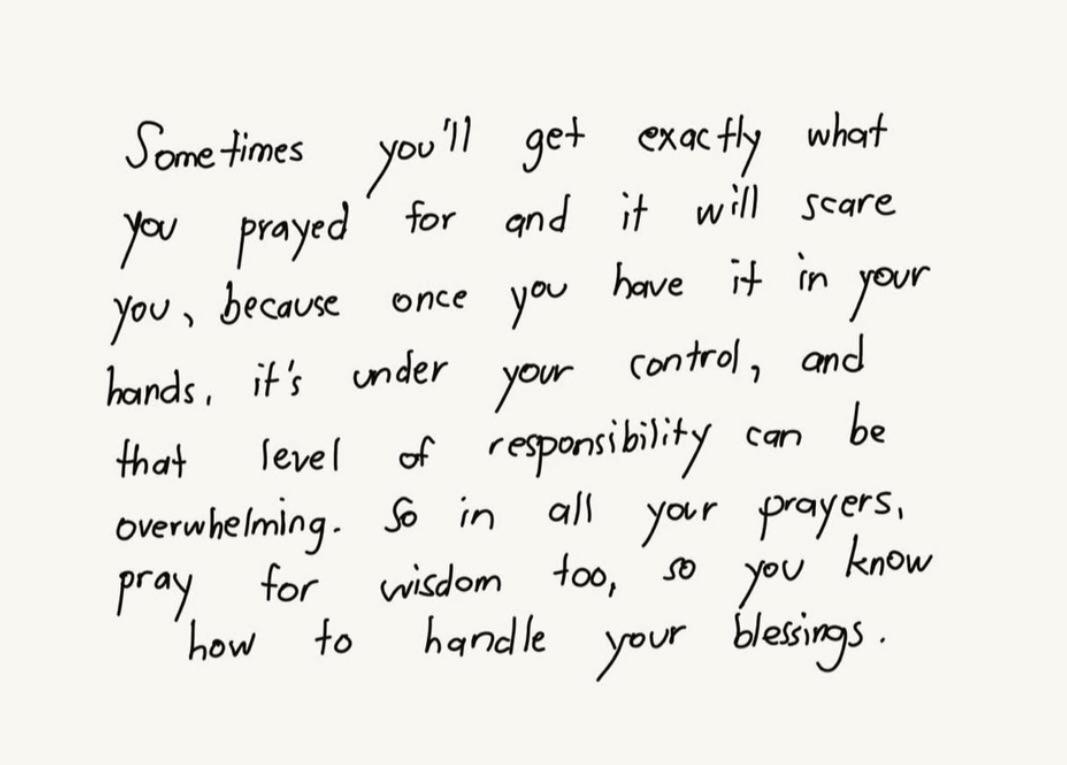 Sometimes you'll get exactly what
you prayed for and it will scare
you, because once you have it in your
hands, it's under your control, and
that level of responsibility can be
overwhelming. So in all your prayers,
pray for wisdom too, so you know
how to handle your blessings.